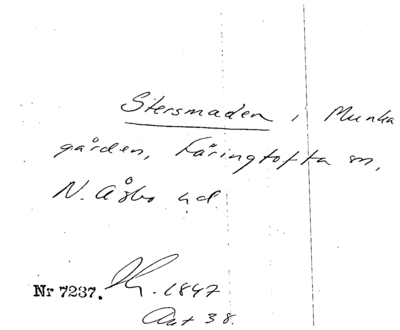 Stersmaden i Munka
gården, Färingtofta sn,
N. Åsbo hd.
Nr 7237. 1847
Akt 38.